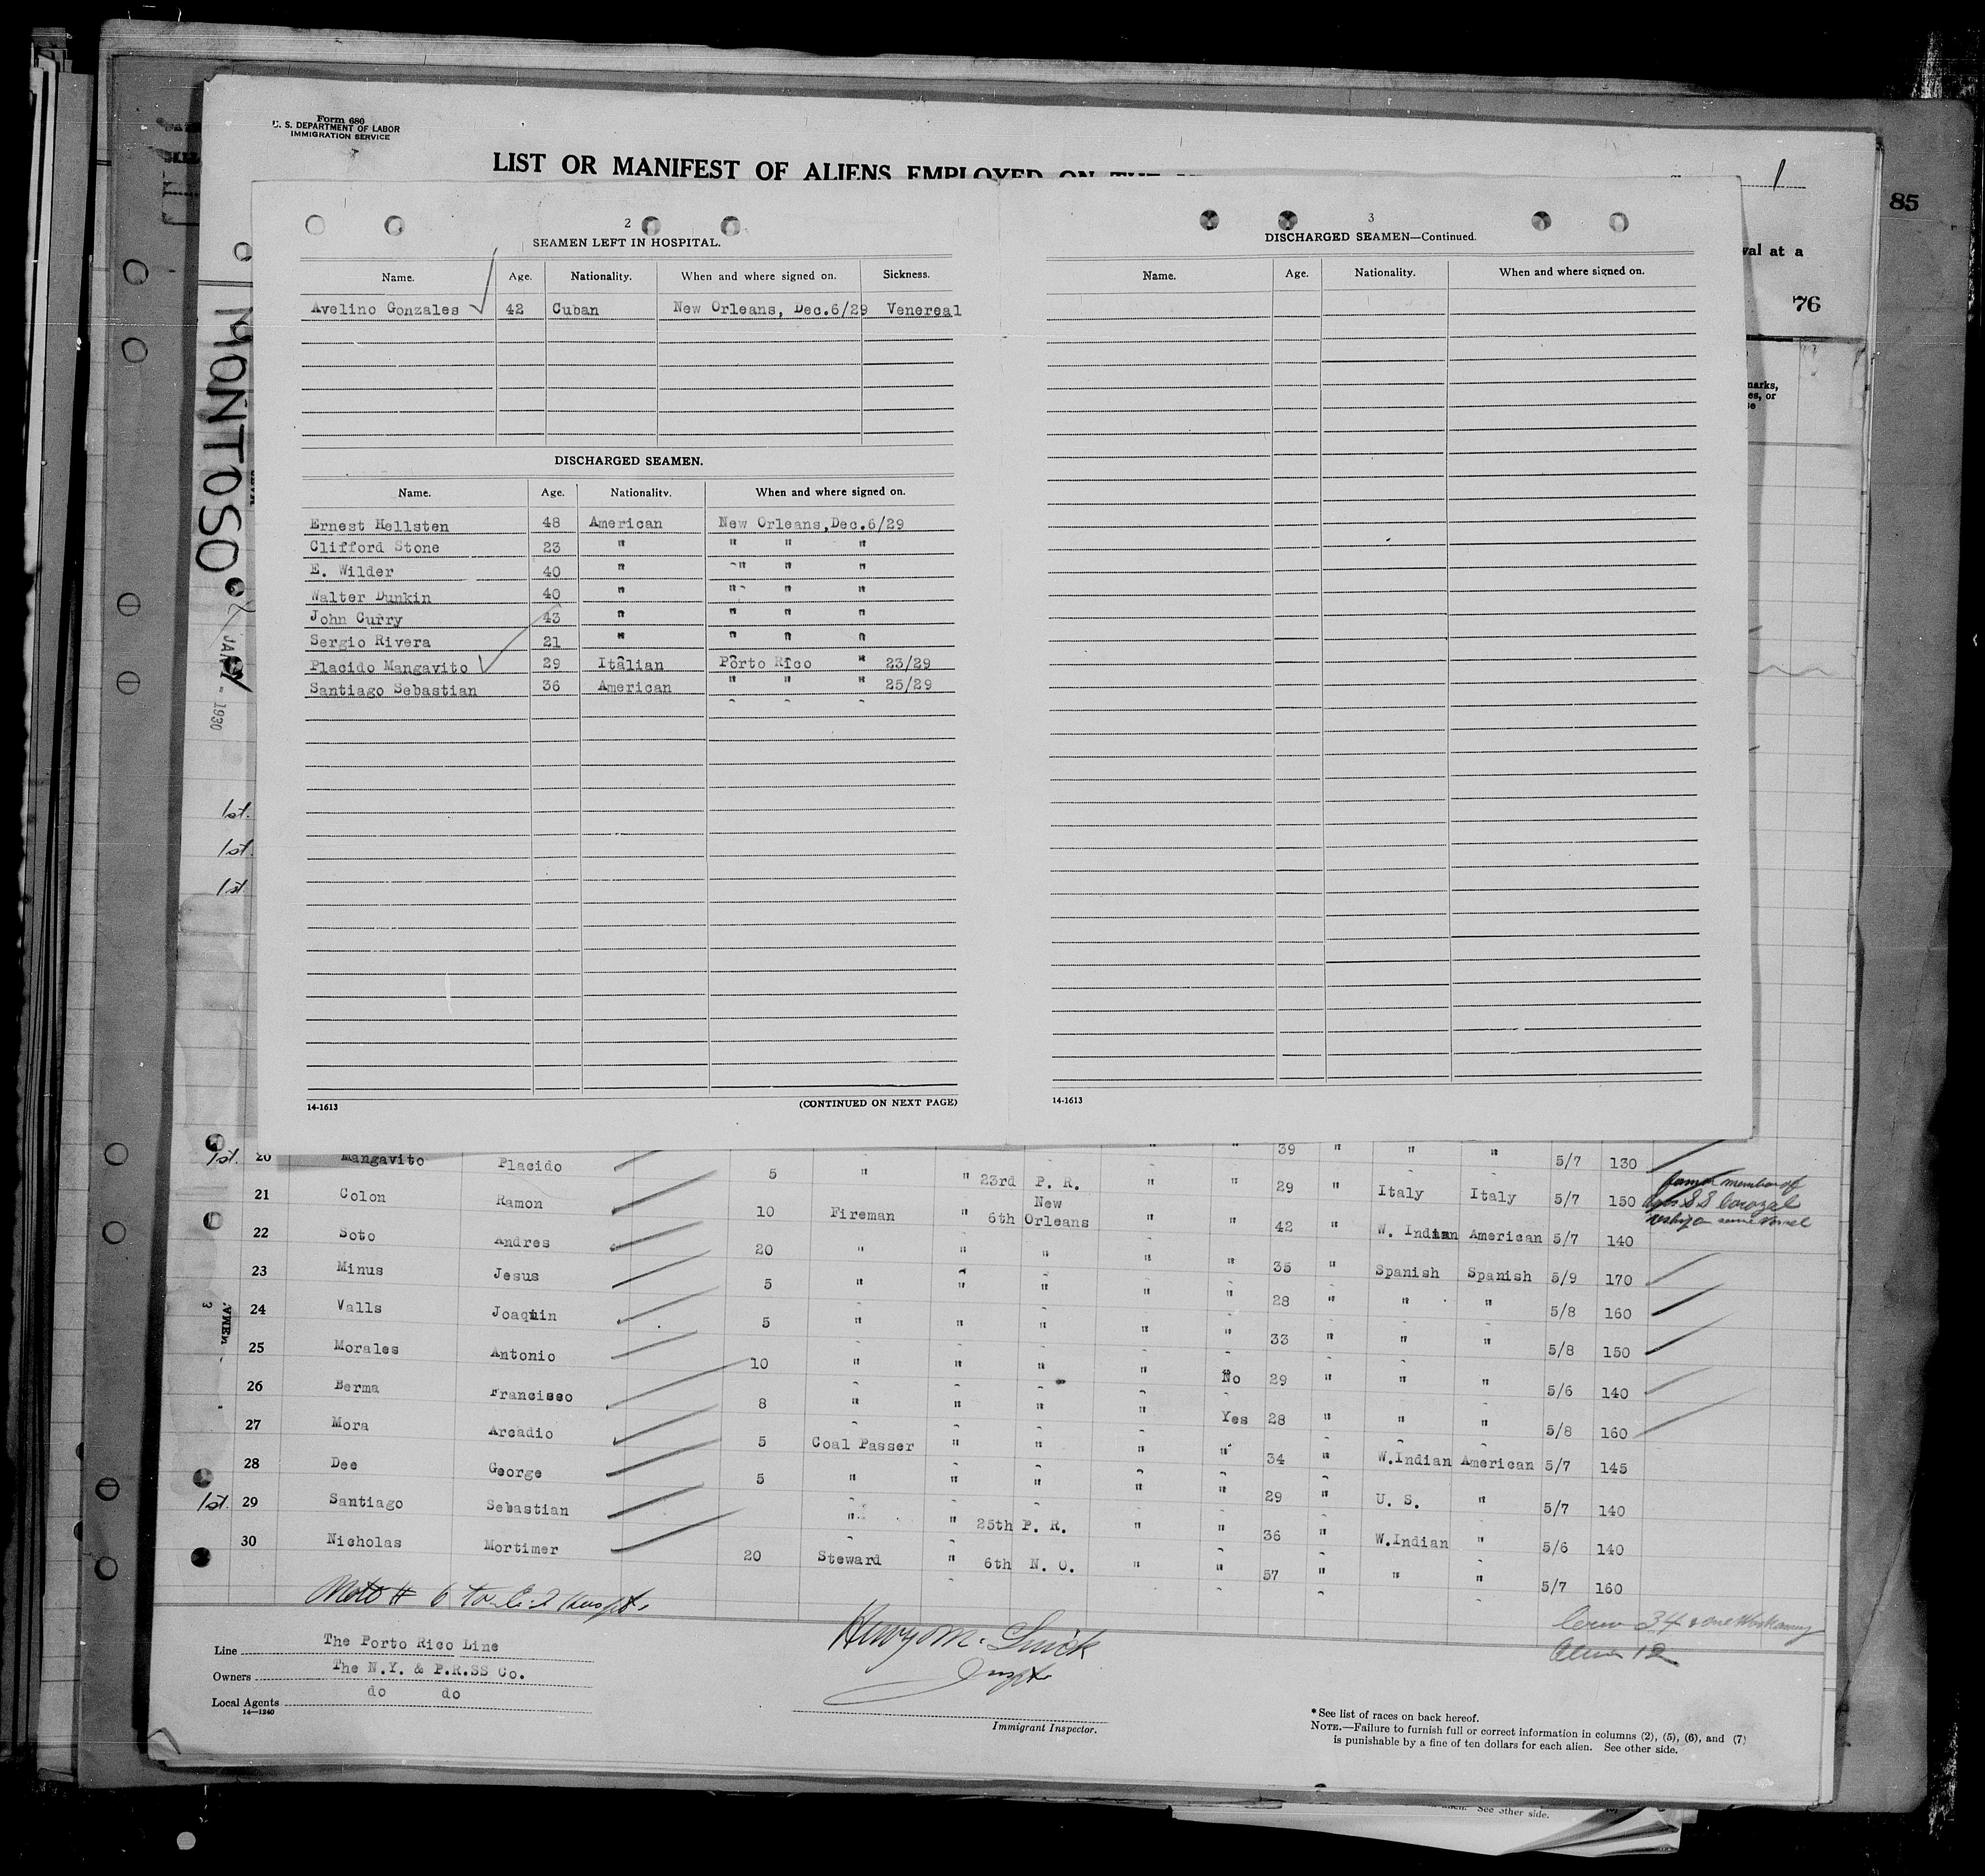 Form 680
U. S. DEPARTMENT OF LABOR
IMMIGRATION SERVICE
LIST OR MANIFEST OF ALIENS EMPLOYED ON THE
1
85
val at a
76
marks,
es, or
se
MONTOSO
1930
1st.
1st.
1st.
2
SEAMEN LEFT IN HOSPITAL.
Name. Age. Nationality. When and where signed on. Sickness.
Avelino Gonzales 42 Cuban New Orleans, Dec.6/29 Venereal
DISCHARGED SEAMEN.
Name. Age. Nationality. When and where signed on.
Ernest Hellsten 48 American New Orleans,Dec.6/29
Clifford Stone 23 " " " "
E. Wilder 40 " " " "
Walter Dunkin 40 " " " "
John Curry 43 " " " "
Sergio Rivera 21 " " " "
Placido Mangavito 29 Italian Porto Rico " 23/29
Santiago Sebastian 36 American " " " 25/29
14-1613 (CONTINUED ON NEXT PAGE)
3
DISCHARGED SEAMEN—Continued.
Name. Age. Nationality. When and where signed on.
14-1613
" " 39 " " " 5/7 130
1st. 20 Mangavito Placido 5 " " 23rd P. R. " " 29 " Italy Italy 5/7 150
21 Colon Ramon 10 Fireman " 6th New Orleans " " 42 " W. Indian American 5/7 140
22 Soto Andres 20 " " " " " 35 " Spanish Spanish 5/9 170
23 Minus Jesus 5 " " " " " 28 " " " 5/8 160
24 Valls Joaquin 5 " " " " " 33 " " " 5/8 150
25 Morales Antonio 10 " " " " No 29 " " " 5/6 140
26 Berma Francisco 8 " " " " Yes 28 " " " 5/8 160
27 Mora Arcadio 5 Coal Passer " " " " 34 " W.Indian American 5/7 145
28 Dee George 5 " " " " " 29 " U. S. " 5/7 140
1st. 29 Santiago Sebastian " " 25th P. R. " " 36 " W.Indian " 5/6 140
30 Nicholas Mortimer 20 Steward " 6th N. O. " " 57 " " " 5/7 160
member of
S S
same vessel
6
34
12
Line The Porto Rico Line
Owners The N.Y. & P.R.SS Co.
Local Agents do do
14—1240
Immigrant Inspector.
* See list of races on back hereof.
NOTE.—Failure to furnish full or correct information in columns (2), (5), (6), and (7)
is punishable by a fine of ten dollars for each alien. See other side.
See other side.